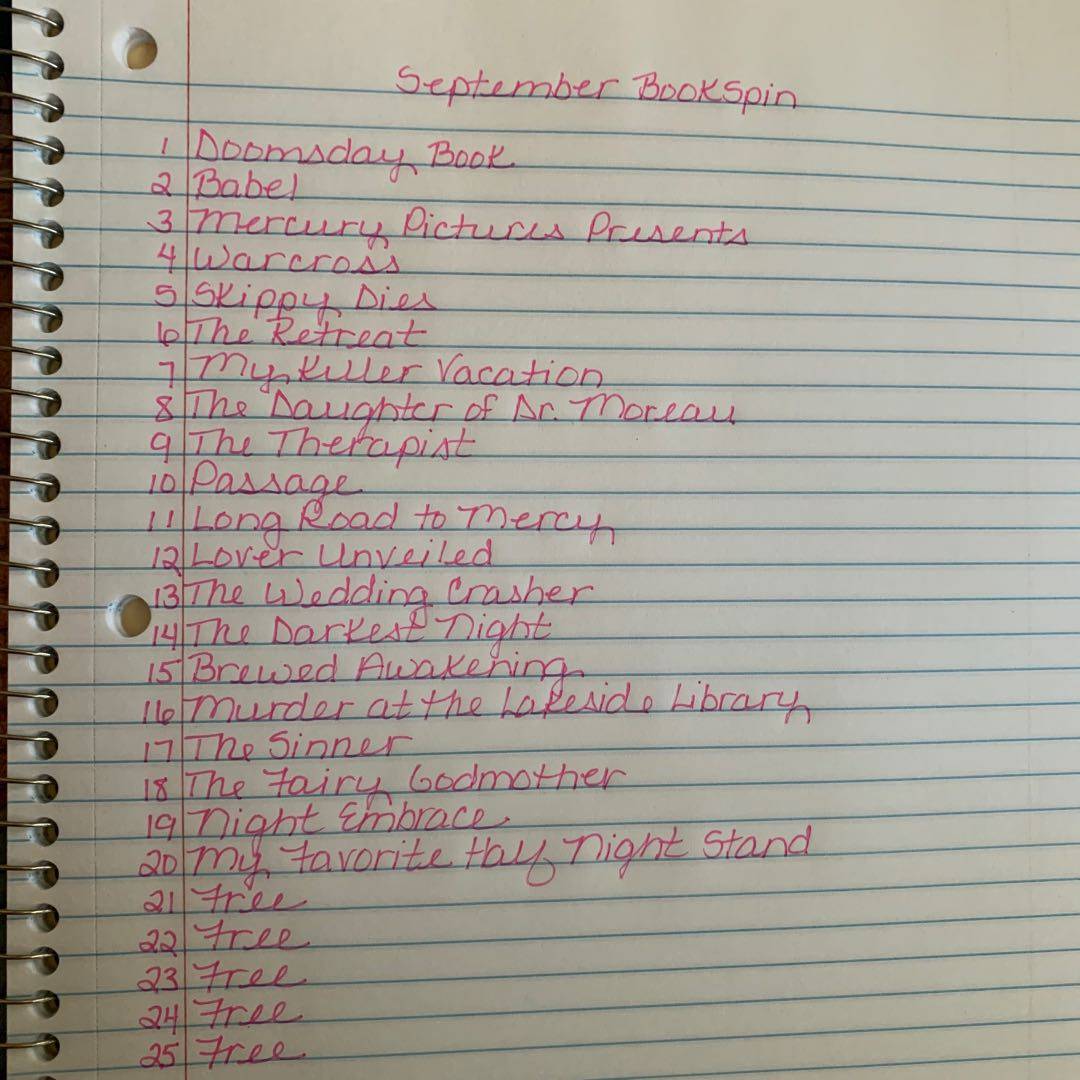 September BookSpin
1 Doomsday Book
2 Babel
3 Mercury Pictures Presents
4 Warcross
5 Skippy Dies
6 The Retreat
7 My Killer Vacation
8 The Daughter of Dr. Moreau
9 The Therapist
10 Passage
11 Long Road to Mercy
12 Lover Unveiled
13 The Wedding Crasher
14 The Darkest Night
15 Brewed Awakening
16 Murder at the Lakeside Library
17 The Sinner
18 The Fairy Godmother
19 Night Embrace
20 My Favorite Half Night Stand
21 Free
22 Free
23 Free
24 Free
25 Free